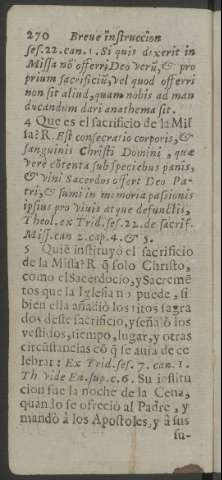 270 Breue instruccion
ses.22.can.1. Si quis dixerit in
Missa nō offerri Deo verũ, & pro
prium sacrificiũ, vel quod offerri
non sit aliud, quam nobis ad man
ducandum dari anathema sit.
4 Que es el sacrificio de la Mis
sa? R. Est consecratio corporis, &
sanguinis Christi Domini, quæ
vere cōtenta sub speciebus panis,
& vini Sacerdos offert Deo Pa-
tri, & sumi in memoria passionis
ipsius pro viuis atque defunctis,
Theol. ex Trid. ses. 22. de sacrif.
Miss. can 2. cap. 4. & 5.
5 Quiē instituyó el sacrificio
de la Missa? R q̃ solo Christo,
como el Sacerdocio, y Sacramē
tos que la Iglesia no puede, si
bien ella añadió los ritos sagra
dos deste sacrificio, y señaló los
vestidos, tiempo, lugar, y otras
circũstancias cō q̃ se auia de ce
lebrar: Ex Trid. ses. 7. can. 1.
Th vide Ea. sup. c. 6. Su institu
cion fue la noche de la Cena,
quando se ofreció al Padre, y
mandó à los Apostoles, y à sus
su-